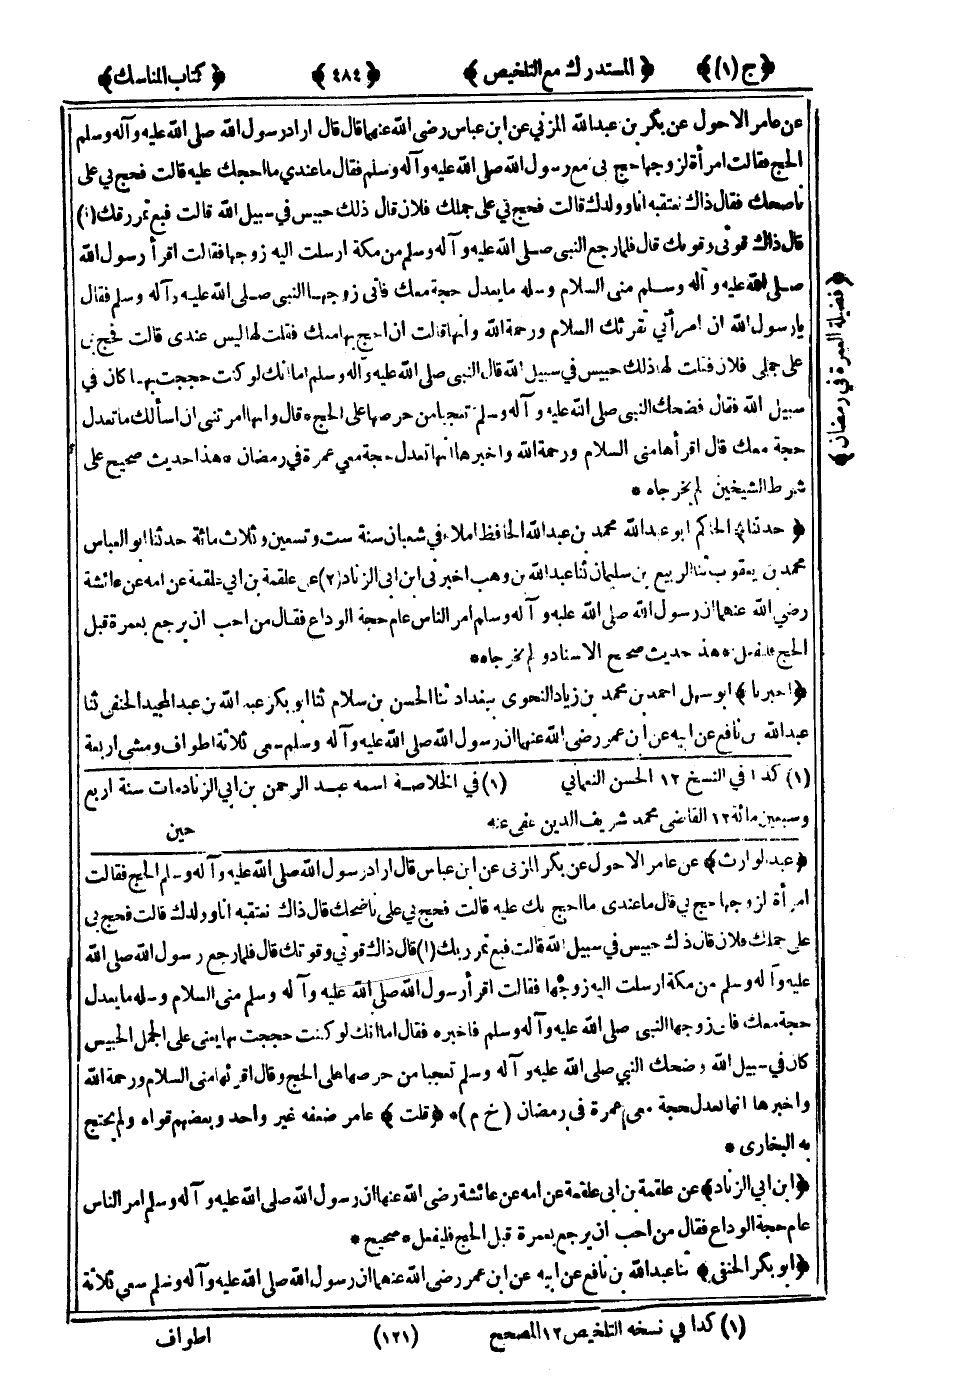 ﴿ج (١)﴾ ﴿المستدرك مع التلخيص﴾ ﴿٤٨٤﴾ ﴿كتاب المناسك﴾
عن عامر الاحول عن بكر بن عبدالله المزني عن ابن عباس رضى الله عنهما قال قال اراد رسول الله صلى الله عليه وآله وسلم
الحج فقالت امرأة لزوجها حج بى مع رسول الله صلى الله عليه وآله وسلم فقال ما عندي ما احجك عليه قالت فحج بي على
ناضحك فقال ذاك نعتقبه انا وولدك قالت فحج بي على جملك فلان قال ذلك حبيس في سبيل الله قالت فبع تمر رقك (١)
قال ذاك قوتى وقوتك قال فلما رجع النبى صلى الله عليه وآله وسلم من مكة ارسلت اليه زوجها فقالت اقرأ رسول الله
صلى الله عليه وآله وسلم منى السلام وسله ما يعدل حجة معك فأتى زوجها النبى صلى الله عليه وآله وسلم فقال
يا رسول الله ان امرأتي تقرئك السلام ورحمة الله وانها قالت ان احج بها معك فقلت لها ليس عندى قالت فحج بى
على جملى فلان فقلت لها ذلك حبيس في سبيل الله قال النبى صلى الله عليه وآله وسلم اما انك لو كنت حججت بها كان في
سبيل الله فقال فضحك النبى صلى الله عليه وآله وسلم تعجبا من حرصها على الحج * قال وانها امرتنى ان اسألك ما تعدل
حجة معك قال اقرأها منى السلام ورحمة الله واخبرها انها تعدل حجة معي عمرة في رمضان * هذا حديث صحيح على
شرط الشيخين لم يخرجاه *
﴿حدثنا﴾ الحاكم ابو عبدالله محمد بن عبدالله الحافظ املاء في شعبان سنة ست وتسعين وثلاث مائة حدثنا ابو العباس
محمد بن يعقوب ثنا الربيع بن سليمان ثنا عبدالله بن وهب اخبرنى ابن ابى الزناد (٢) عن علقمة بن ابي علقمة عن امه عن عائشة
رضي الله عنها ان رسول الله صلى الله عليه وآله وسلم امر الناس عام حجة الوداع فقال من احب ان يرجع بعمرة قبل
الحج فليفعل * هذا حديث صحيح الاسناد ولم يخرجاه *
﴿اخبرنا﴾ ابو سهل احمد بن محمد بن زياد النحوى ببغداد ثنا الحسن بن سلام ثنا ابو بكر عبد الله بن عبد المجيد الحنفى ثنا
عبدالله بن نافع عن ابيه عن ابن عمر رضى الله عنهما ان رسول الله صلى الله عليه وآله وسلم سعى ثلاثة اطواف ومشى اربعة
(١) كذا في النسخ ١٢ الحسن النعماني (١) في الخلاصة اسمه عبد الرحمن بن ابي الزناد مات سنة اربع
وسبعين مائة ١٢ القاضى محمد شريف الدين عفى عنه حين
﴿عبد الوارث﴾ عن عامر الاحول عن بكر المزنى عن ابن عباس قال اراد رسول الله صلى الله عليه وآله وسلم الحج فقالت
امرأة لزوجها حج بي قال ما عندى ما احج بك عليه قالت فحج بي على ناضحك قال ذاك نعتقبه انا وولدك قالت فحج بى
على جملك فلان قال ذلك حبيس في سبيل الله قالت فبع تمر ربك (١) قال ذاك قوتي وقوتك قال فلما رجع رسول الله صلى الله
عليه وآله وسلم من مكة ارسلت اليه زوجها فقالت اقرأ رسول الله صلى الله عليه وآله وسلم منى السلام وسله ما يعدل
حجة معك فأتى زوجها النبى صلى الله عليه وآله وسلم فاخبره فقال اما انك لو كنت حججت بها يعنى على الجمل الحبيس
كان في سبيل الله وضحك النبي صلى الله عليه وآله وسلم تعجبا من حرصها على الحج وقال اقرئها منى السلام ورحمة الله
واخبرها انها تعدل حجة معى عمرة في رمضان (خ م) * ﴿قلت﴾ عامر ضعفه غير واحد وبعضهم قواه ولم يحتج
به البخارى *
﴿ابن ابي الزناد﴾ عن علقمة بن ابى علقمة عن امه عن عائشة رضى الله عنها ان رسول الله صلى الله عليه وآله وسلم امر الناس
عام حجة الوداع فقال من احب ان يرجع بعمرة قبل الحج فليفعل * صحيح *
﴿ابو بكر الحنفى﴾ ثنا عبدالله بن نافع عن ابيه عن ابن عمر رضى الله عنهما ان رسول الله صلى الله عليه وآله وسلم سعى ثلاثة
(١) كذا في نسخه التلخيص ١٢ المصحح (١٢١) اطواف
﴿فضيلة العمرة في رمضان﴾